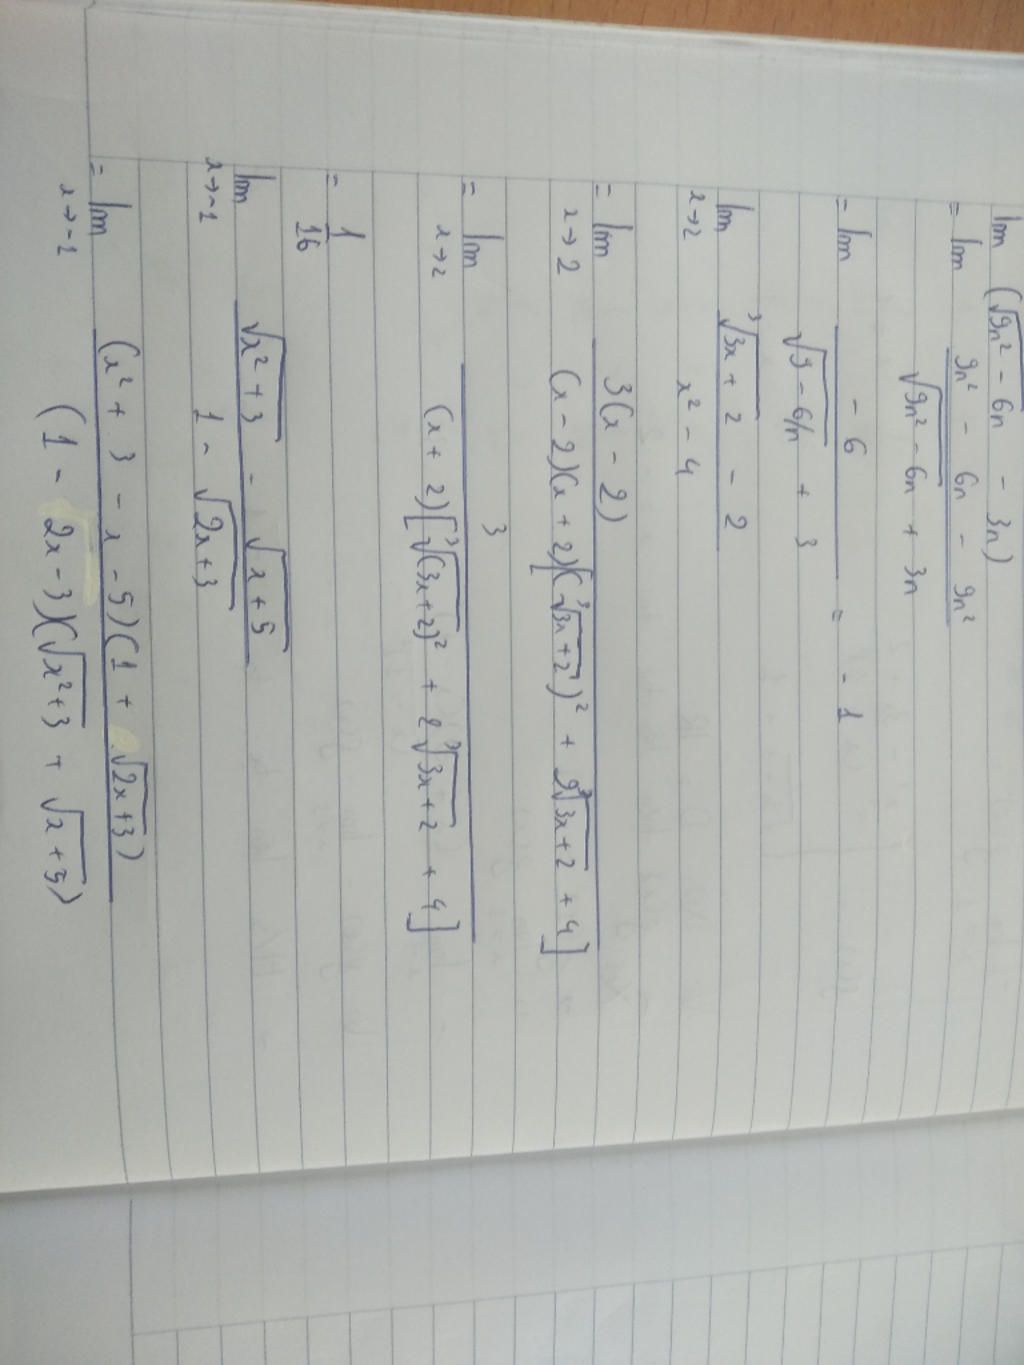 lim (√9n² - 6n - 3n)
= lim 9n² - 6n - 9n²
√9n² - 6n + 3n
= lim - 6 = - 1
√9 - 6/n + 3
lim ³√3x + 2 - 2
x→2 x² - 4
= lim 3(x - 2)
x→2 (x - 2)(x + 2)[(³√3x+2)² + 2³√3x+2 + 4]
= lim 3
x→2 (x + 2)[³√(3x+2)² + 2³√3x+2 + 4]
= 1
16
lim √x² + 3 - √x + 5
x→-1 1 - √2x+3
= lim (x² + 3 - x - 5)(1 + √2x+3)
x→-1 (1 - 2x - 3)(√x²+3 + √x+5)